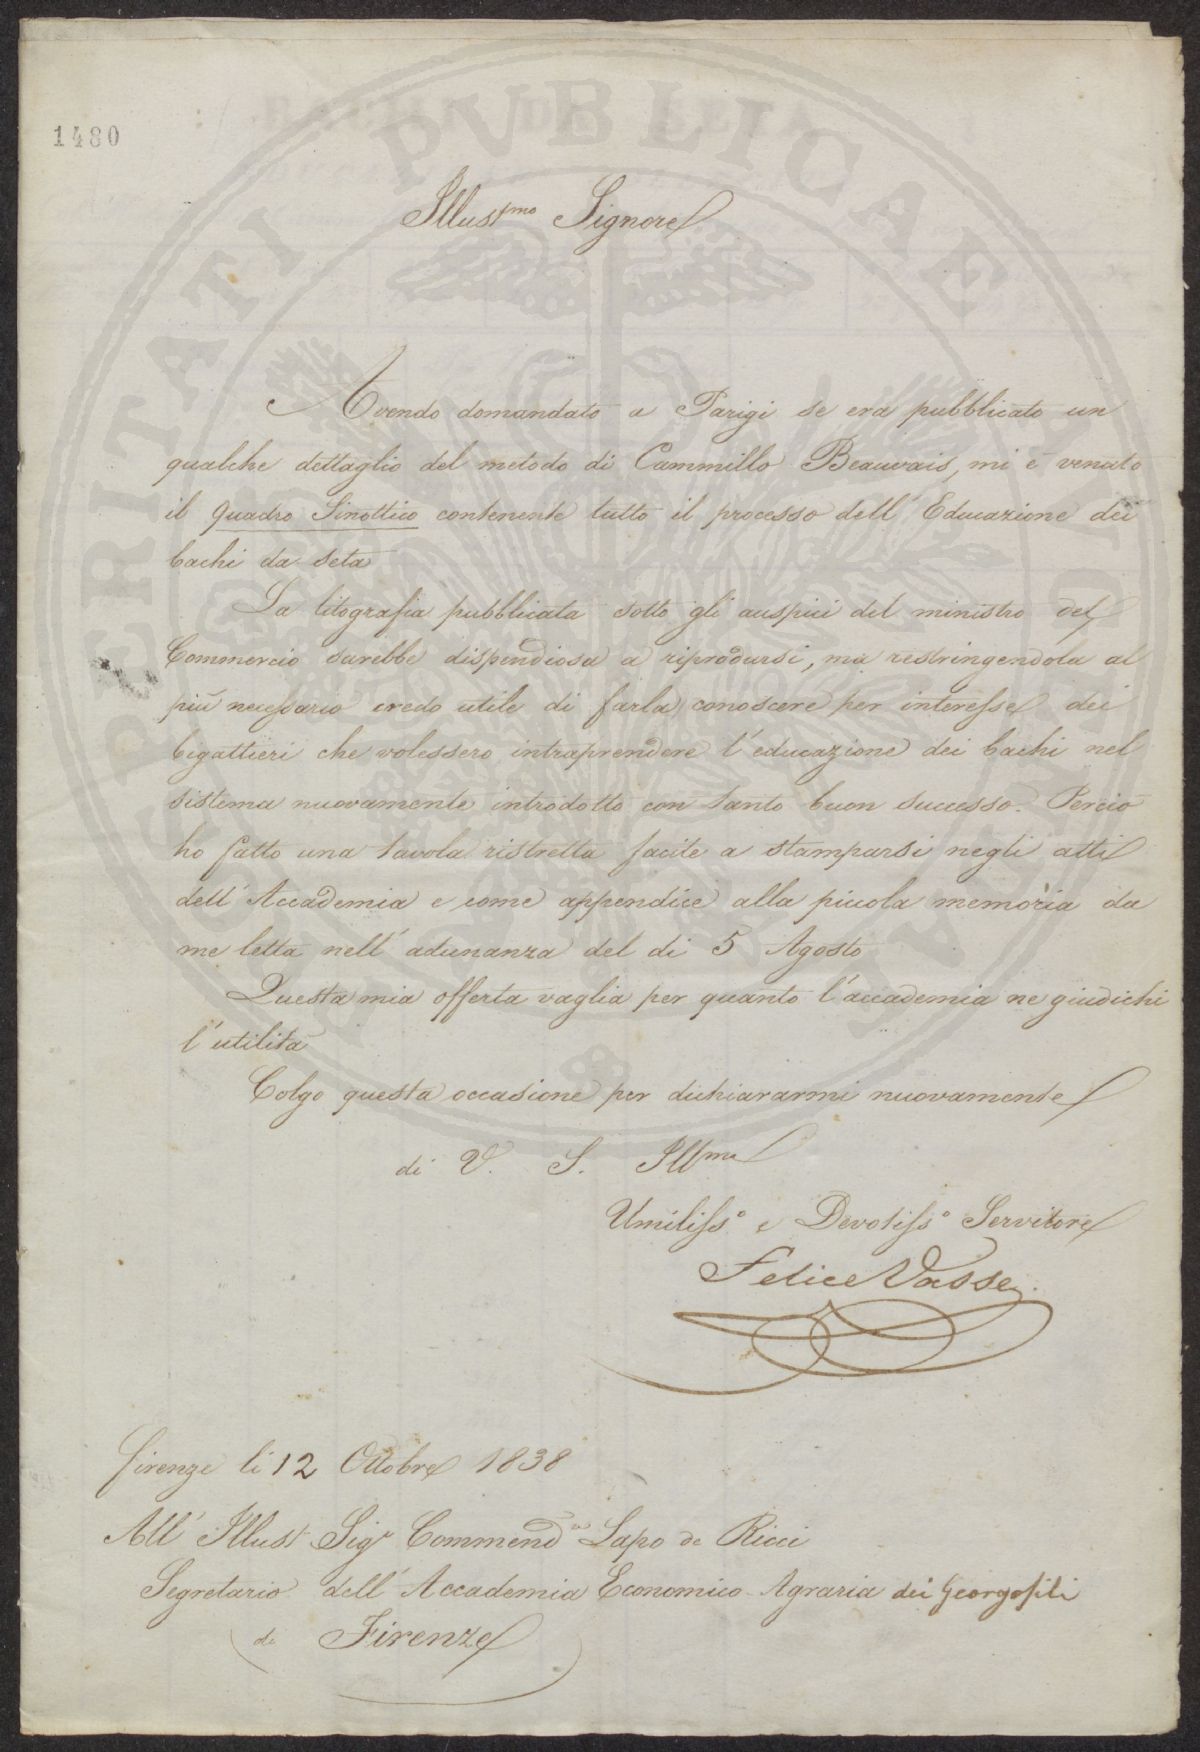 1480
Illustmo Signore
Avendo domandato a Parigi se era pubblicato un
qualche dettaglio del metodo di Cammillo Beauvais, mi è venuto
il Quadro Sinottico contenente tutto il processo dell' Educazione dei
bachi da seta
La litografia pubblicata sotto gli auspici del ministro del
Commercio sarebbe dispendiosa a riprodursi, ma restringendola al
più necessario credo utile di farla conoscere per interesse dei
bigattieri che volessero intraprendere l'educazione dei bachi nel
sistema nuovamente introdotto con tanto buon successo. Perciò
ho fatto una tavola ristretta facile a stamparsi negli atti
dell' Accademia e come appendice alla piccola memoria da
me letta nell' adunanza del di 5 Agosto
Questa mia offerta vaglia per quanto l'accademia ne giudichi
l'utilità
Colgo questa occasione per dichiararmi nuovamente
di V. S. Illma
Umilisso e Devotisso Servitore
Felice Vasse
Firenze li 12 Ottobre 1838
All' Illust Sigr Commend Lapo de Ricci
Segretario dell' Accademia Economico Agraria dei Georgofili
di Firenze
PROSPERITATI PUBLICAE AUGENDAE